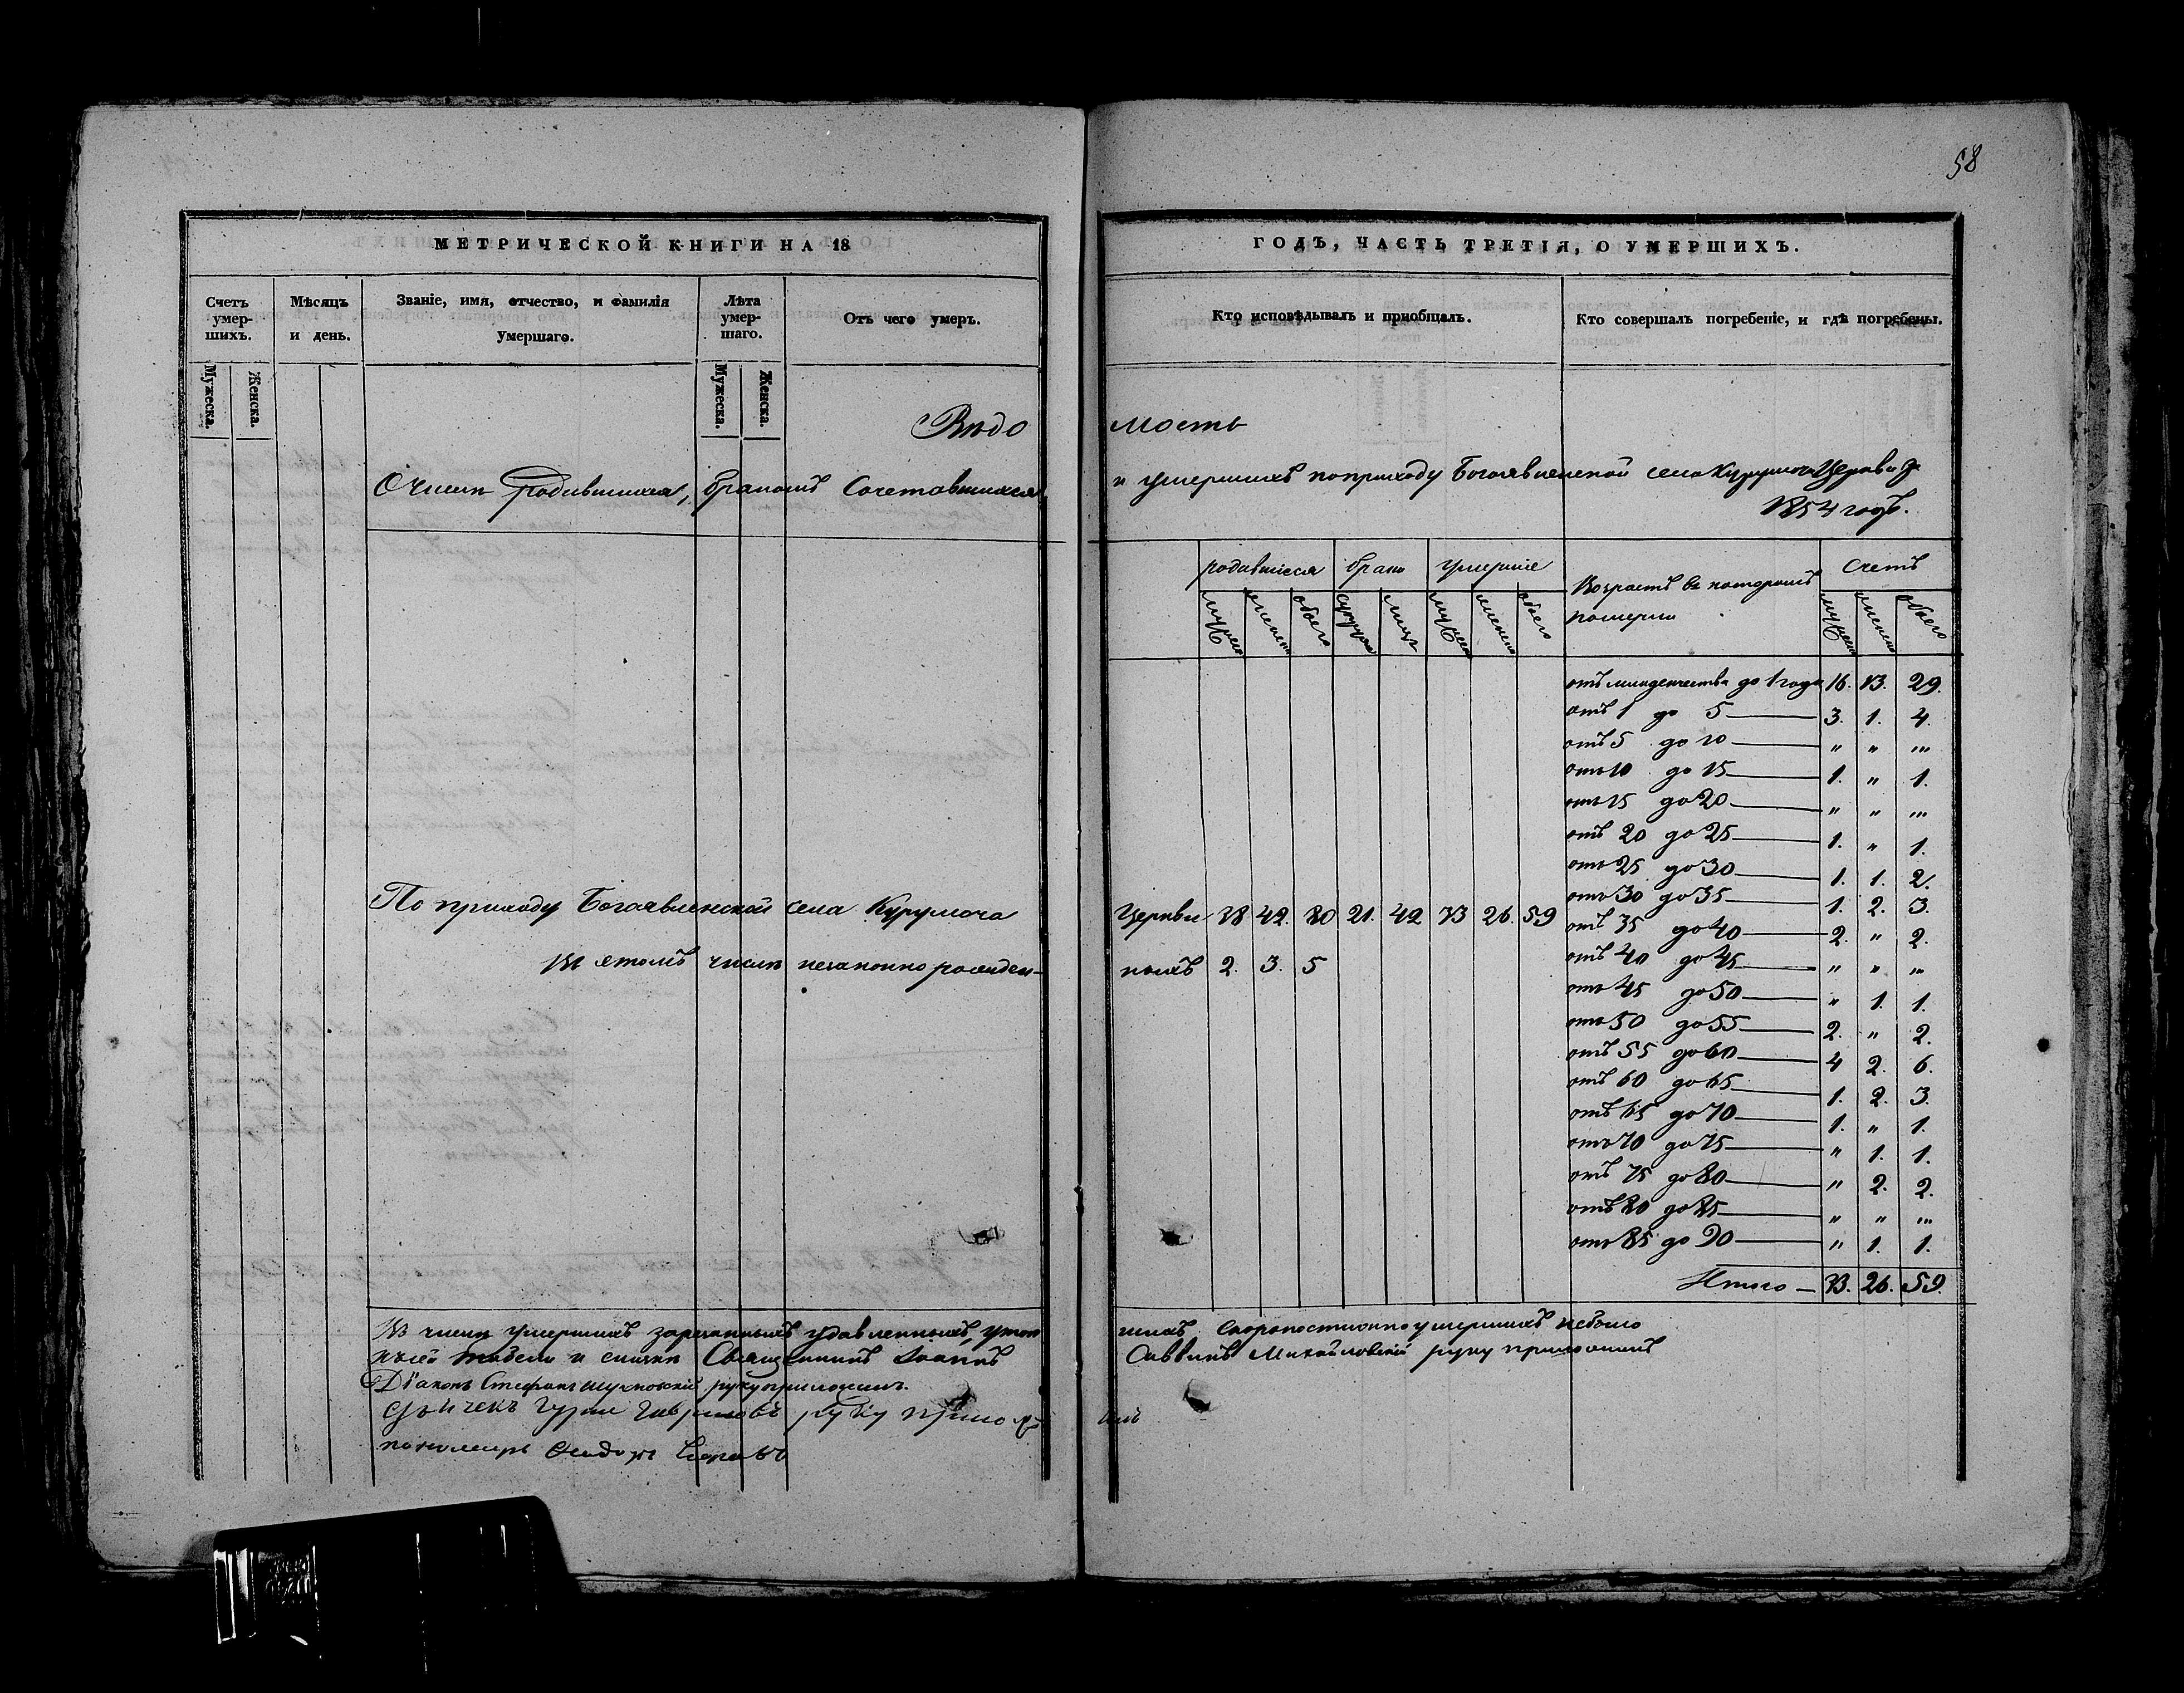 58
МЕТРИЧЕСКОЙ КНИГИ НА 18
ГОДЪ, ЧАСТЬ ТРЕТІЯ, О УМЕРШИХЪ.
Счетъ умер-шихъ.
Мѣсяцъ и день.
Званіе, имя, отчество, и фамилія Умершаго.
Лѣта умер-шаго.
Отъ чего умеръ.
Кто исповѣдывалъ и пріобщалъ.
Кто совершалъ погребеніе, и гдѣ погребены.
Мужеска. Женска.
Мужеска. Женска.
Вѣдо мость
О числѣ родившихся, бракомъ сочетавшихся и умершихъ по приходу Богоявленской села Курумоча Церкви за
1854 годъ.
родившіеся браки умершіе Возрастъ въ которомъ померли счетъ
мужеска женска обоего супруж лицъ мужеска женска обоего мужеска женска обоего
отъ младенчества до 1 года 16. 13. 29.
отъ 1 до 5 3. 1. 4.
отъ 5 до 10 " " "'
отъ 10 до 15 1. " 1.
отъ 15 до 20 " " "'
отъ 20 до 25 1. " 1.
отъ 25 до 30 1. 1. 2.
отъ 30 до 35 1. 2. 3.
отъ 35 до 40 2. " 2.
отъ 40 до 45 " " "'
отъ 45 до 50 " 1. 1.
отъ 50 до 55 2. " 2.
отъ 55 до 60 4 2. 6.
отъ 60 до 65 1. 2. 3.
отъ 65 до 70 1. " 1.
отъ 70 до 75 " 1. 1.
отъ 75 до 80 " 2. 2.
отъ 80 до 85 " " "'
отъ 85 до 90 " 1. 1.
Итого 33. 26. 59.
По приходу Богоявленской села Курумоча Церкви 38 42. 80 21. 42 33 26. 59
Въ етомъ числѣ незаконно рожден-ныхъ 2. 3. 5
Въ числѣ умершихъ зарезанныхъ удавленныхъ, утоп шихъ, скоропостижно умершихъ небыло
Священникъ Іоаннъ Саввинъ Михайловскій руку приложилъ
Діаконъ Стефанъ руку приложилъ.
Дьячекъ Гурій Гавриловъ руку прилож илъ
пономарь